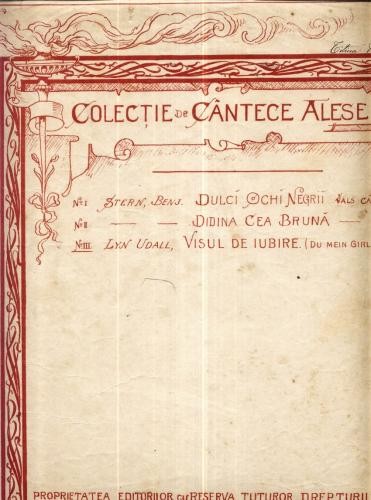 COLECŢIE DE CÂNTECE ALESE
No I STERN, BENJ. DULCI OCHI NEGRII VALS CÂ
No II — — DIDINA CEA BRUNĂ —
No III LYN UDALL, VISUL DE IUBIRE. (DU MEIN GIRL
PROPRIETATEA EDITORILOR CU RESERVA TUTUROR DREPTURIL